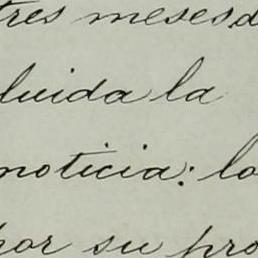 tres meses d
luida la
noticia: lo
por su pro